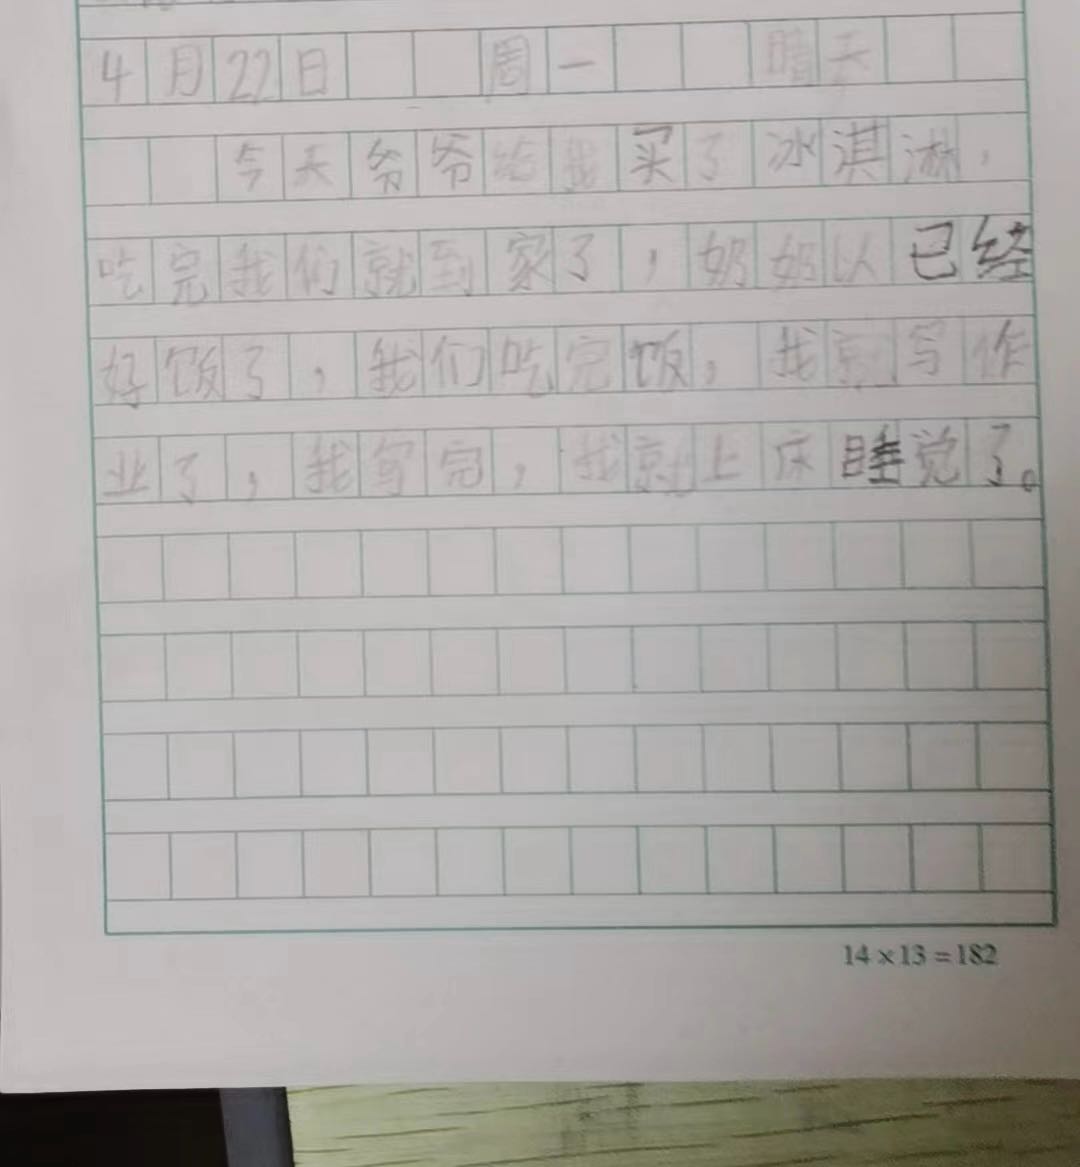 4月22日 周一 晴天
今天爷爷给我买了冰淇淋，
吃完我们就到家了，奶奶以已经
好饭了，我们吃完饭，我就写作
业了，我写完，我就上床睡觉了。
14×13=182